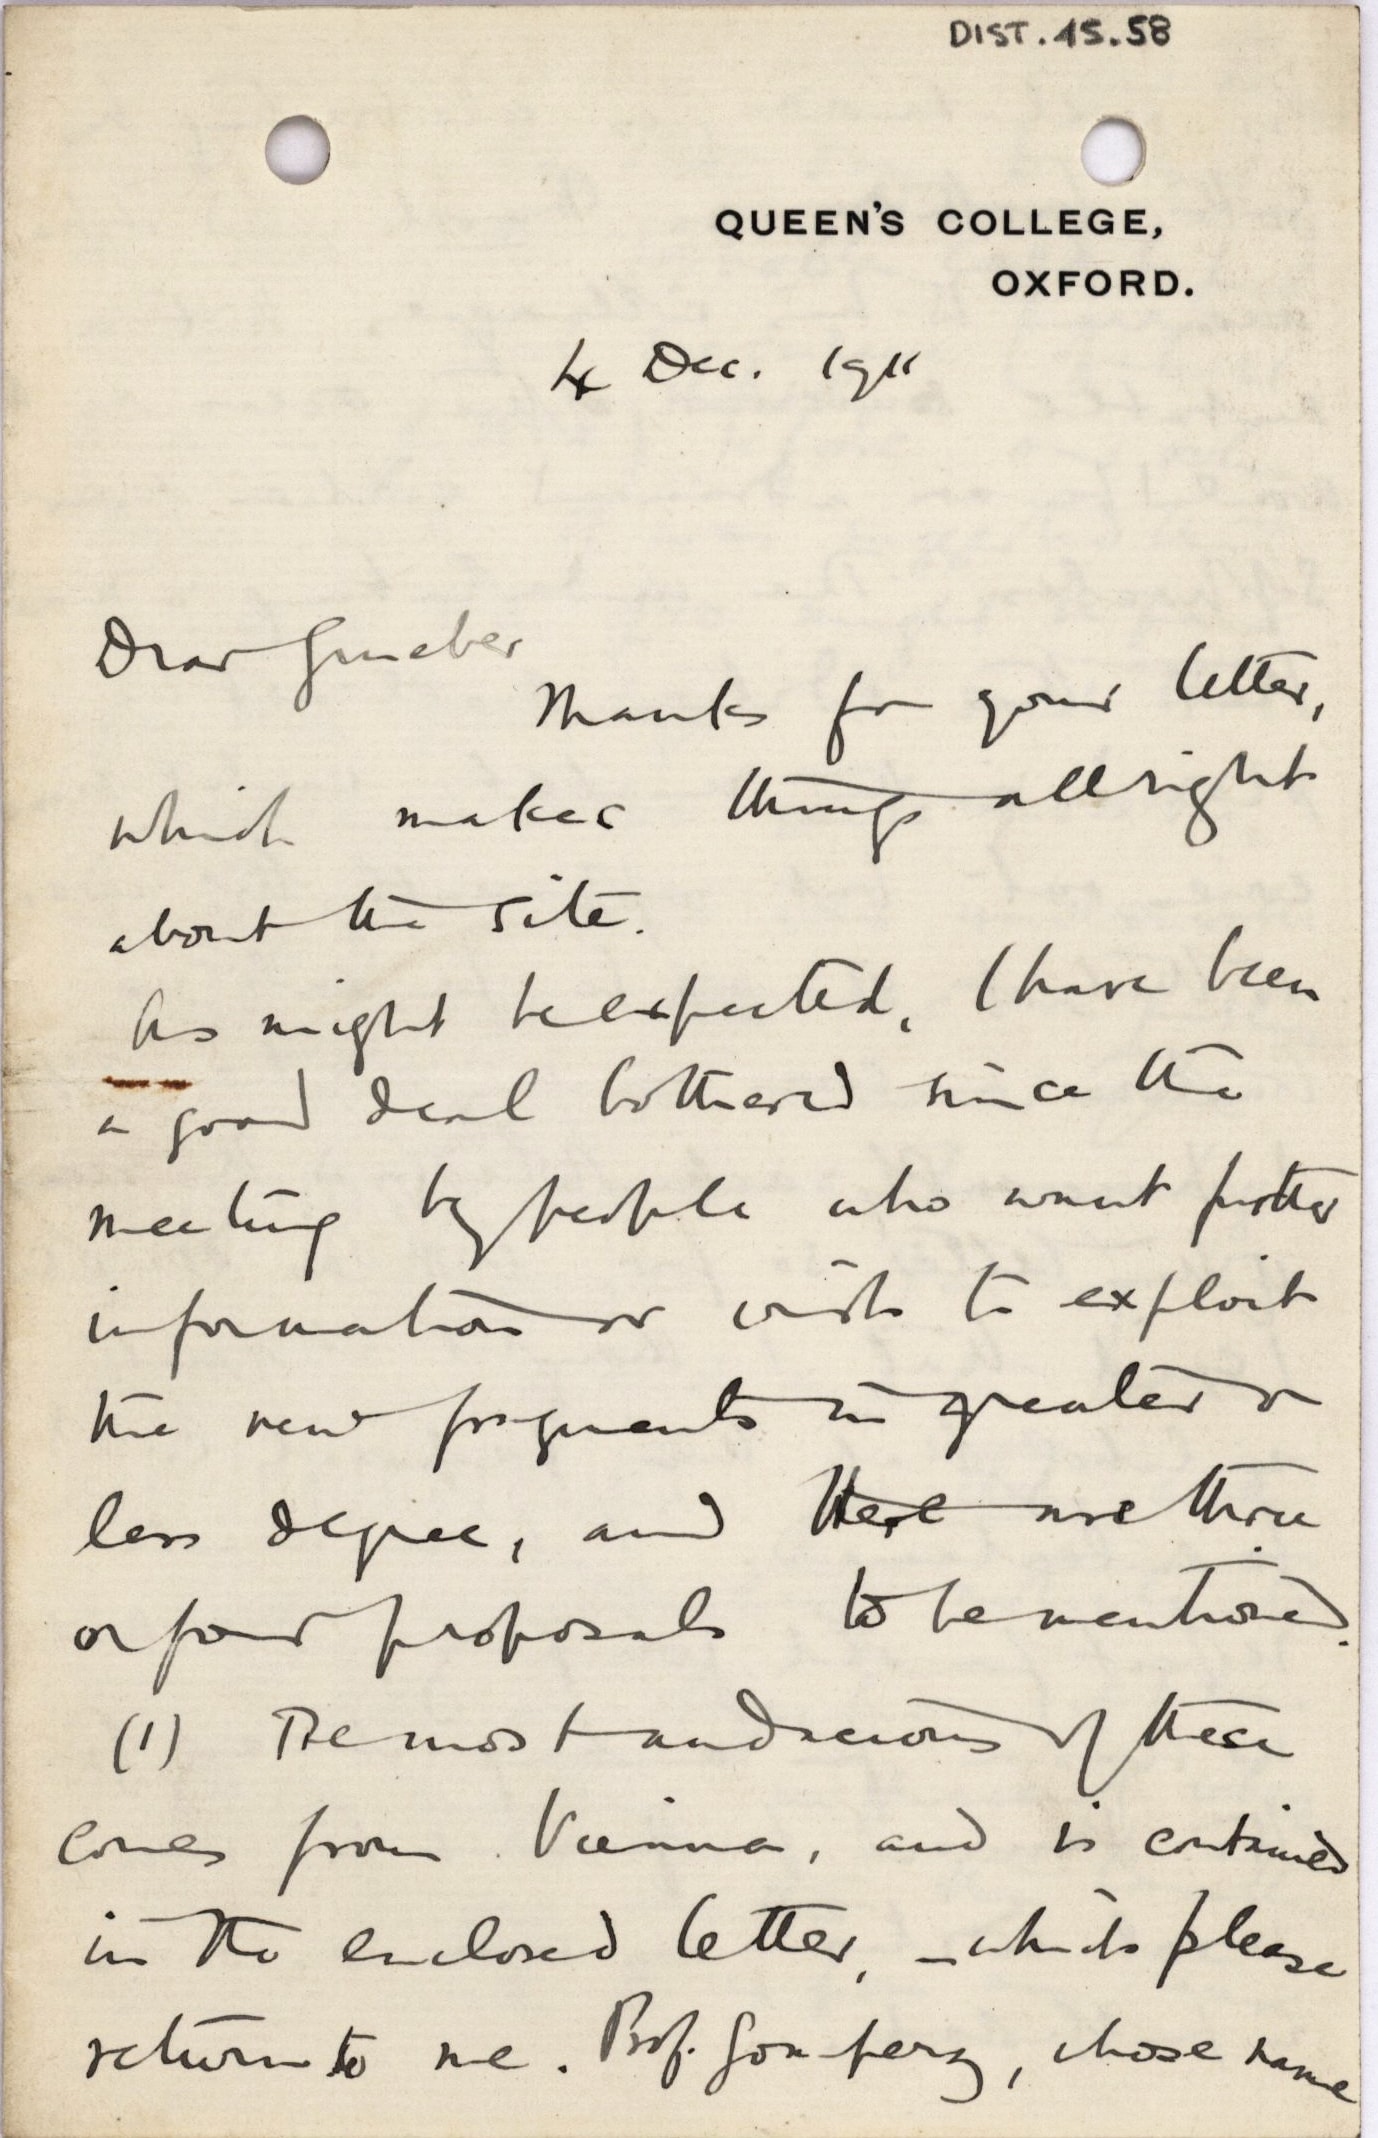 DIST.45.58
QUEEN'S COLLEGE,
OXFORD.
4 Dec. 1911
Dear Grueber
Thanks for your letter,
which makes things allright
about the site.
As might be expected, I have been
a good deal bothered since the
meeting by people who want further
information or wish to exploit
the new fragments in greater or
less degree, and there are three
or four proposals to be mentioned.
(1) The most audacious of these
comes from Vienna, and is contained
in the enclosed letter, – which please
return to me. Prof. Gomperz, whose name